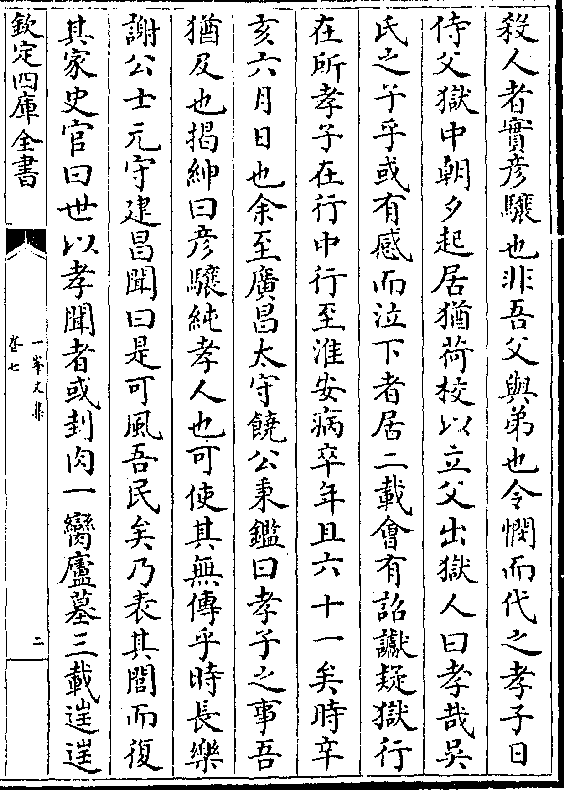 殺人者實彦驤也非吾父與弟也令憫而代之孝子日
侍父獄中朝夕起居猶荷校以立父出獄人曰孝哉吳
氏之子乎或有感而泣下者居二載會有詔讞疑獄行
在所孝子在行中行至淮安病卒年且六十一矣時辛
亥六月日也余至廣昌太守饒公秉鑑曰孝子之事吾
猶及也揭紳曰彦驤純孝人也可使其無傳乎時長樂
謝公士元守建昌聞曰是可風吾民矣乃表其閭而復
其家史官曰世以孝聞者或刲肉一臠廬墓三載逹逹
欽定四庫全書
一峯文集
卷七
二